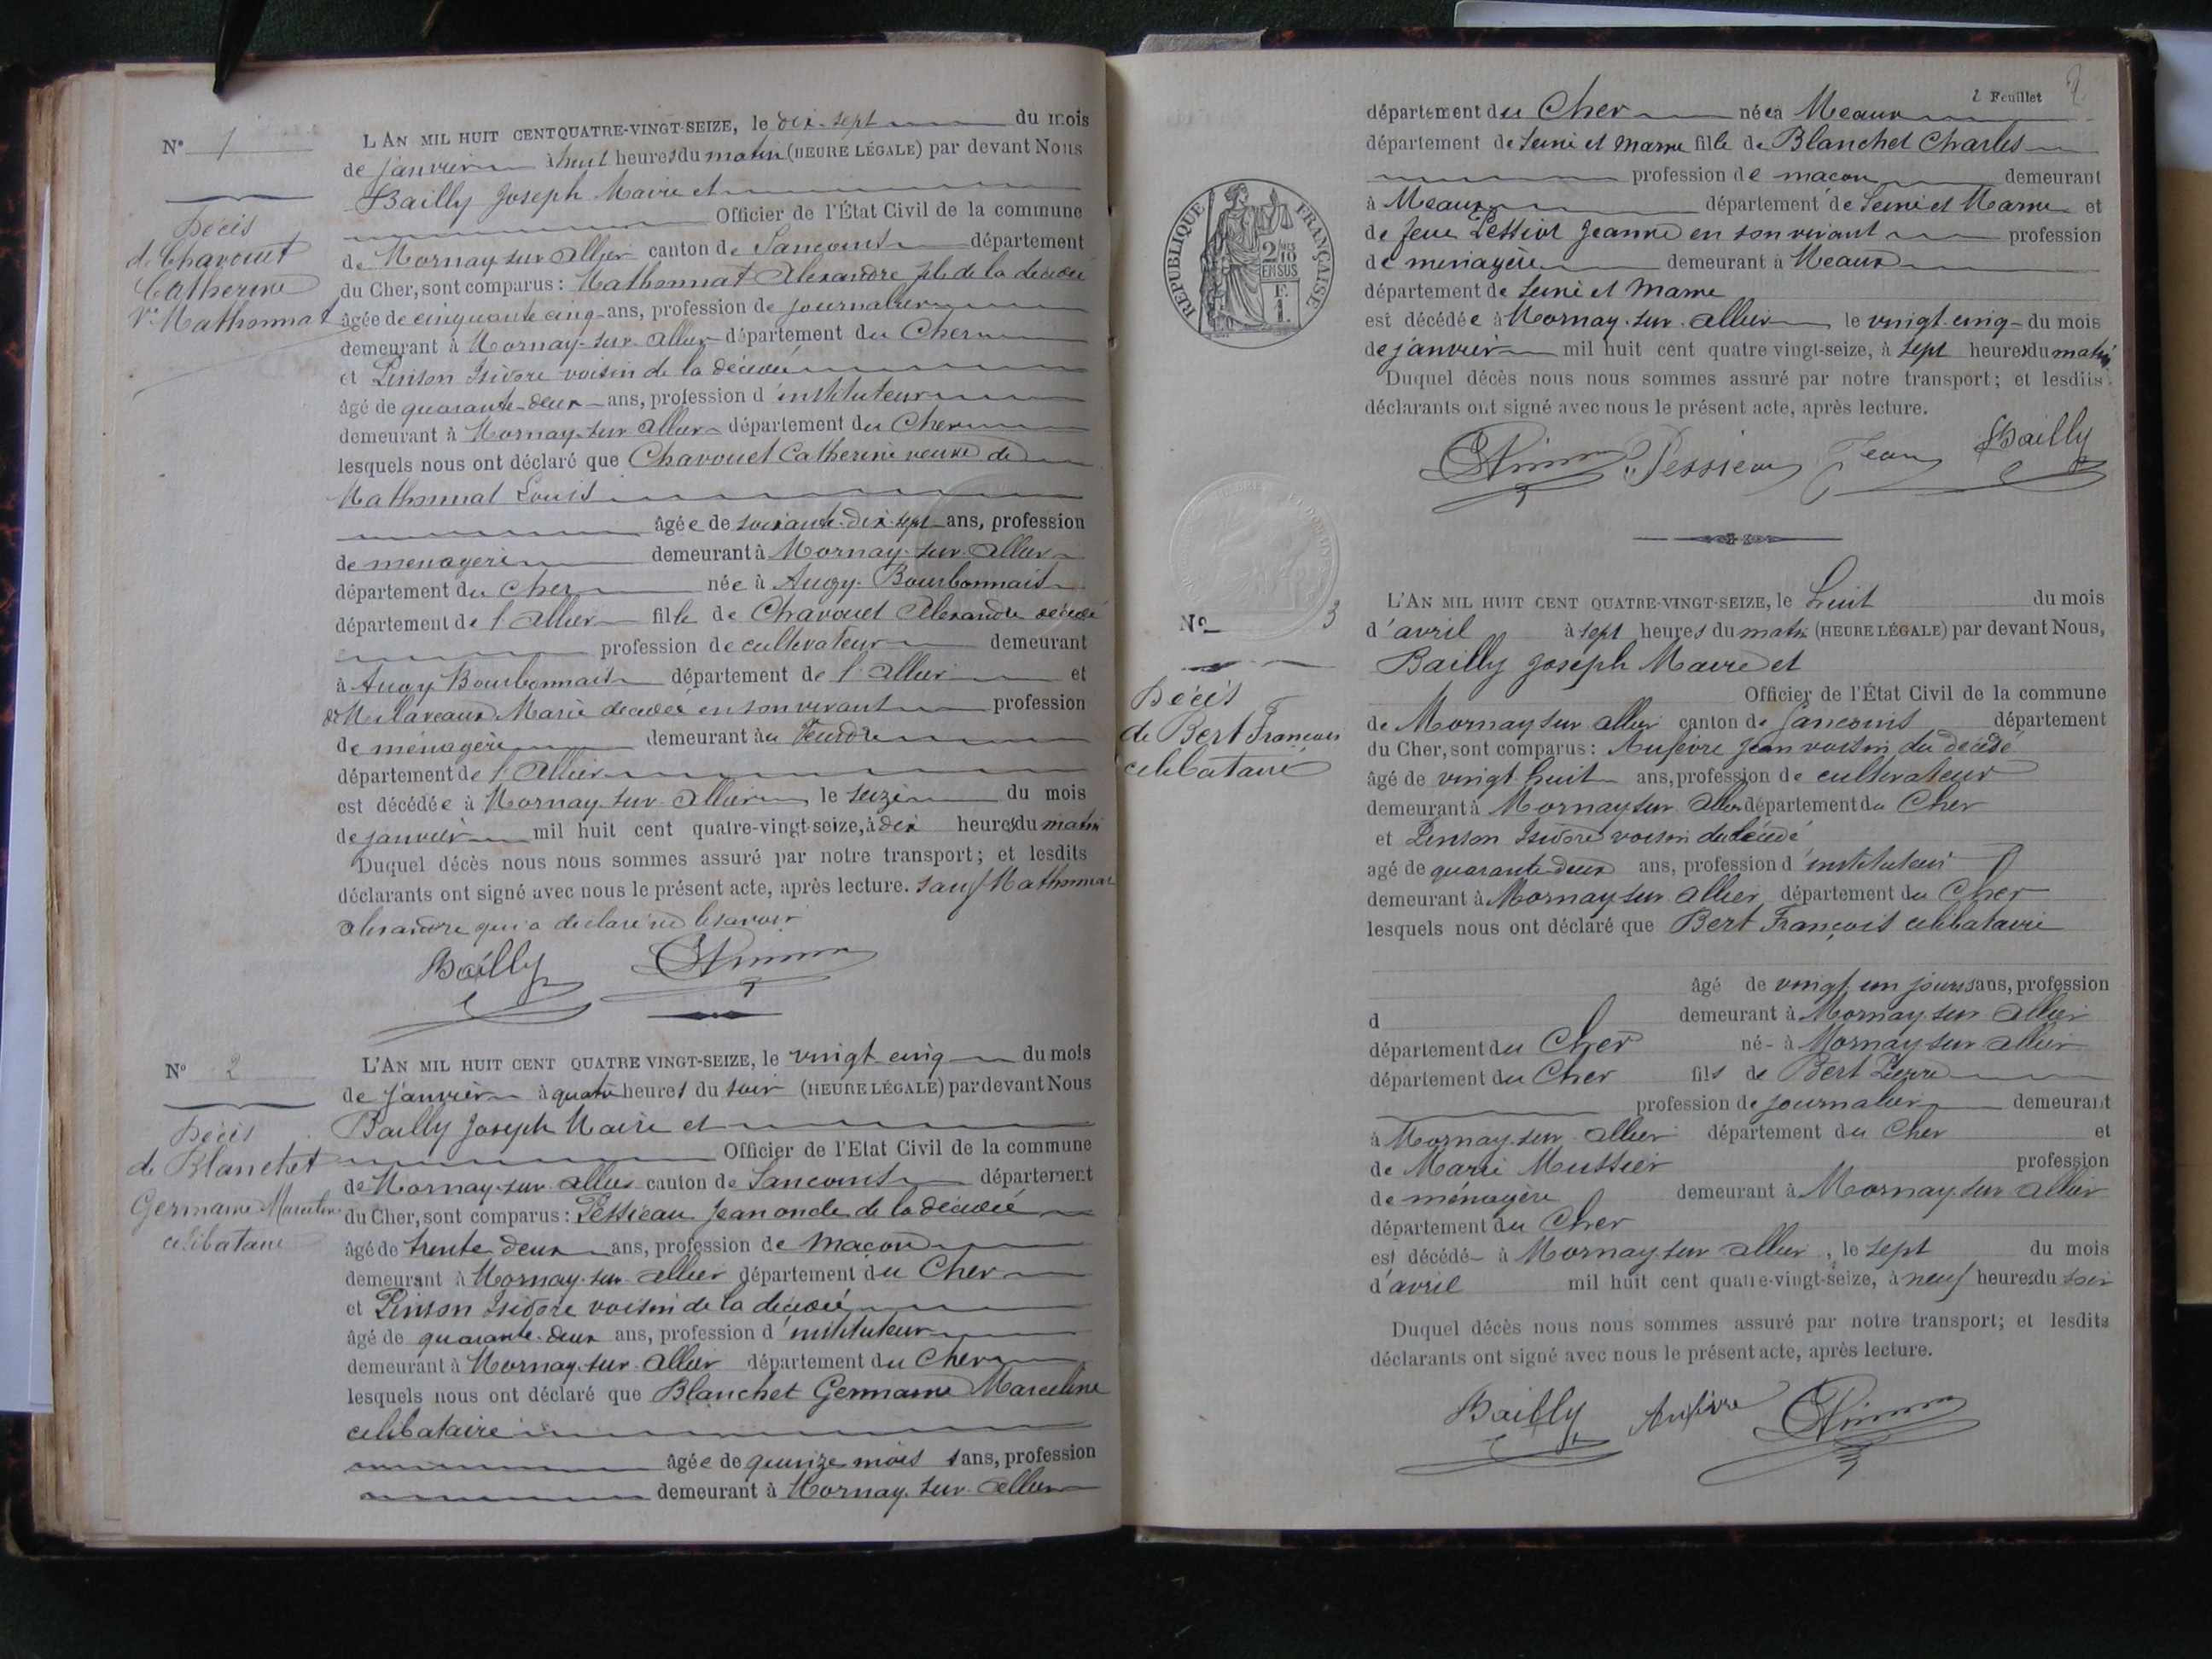 Nº 1
Décès
de Chavouet
Catherine
Vve Mathonnat
L AN MIL HUIT CENT QUATRE-VINGT-SEIZE, le dix-sept du mois
de janvier à huit heures du matin (HEURE LÉGALE) par devant Nous
Bailly Joseph Maire et
Officier de l'État Civil de la commune
de Mornay sur Allier canton de Sancoins département
du Cher, sont comparus : Mathonnat Alexandre fils de la décédée
âgée de cinquante cinq ans, profession de journalier
demeurant à Mornay-sur-Allier département du Cher
et Pinson Isidore voisin de la décédée
âgé de quarante-deux ans, profession d'instituteur
demeurant à Mornay-sur Allier département du Cher
lesquels nous ont déclaré que Chavouet Catherine veuve de
Mathonnat Louis
âgée de soixante-dix-sept ans, profession
de menagère demeurant à Mornay-sur-Allier
département du Cher née à Augy-Bourbonnais
département de l'Allier fille de Chavouet Alexandre décédé
profession de cultivateur demeurant
à Augy Bourbonnais département de l'Allier et
de Marie décédée en son vivant profession
de ménagère demeurant au Veurdre
département de l'Allier
est décédée à Mornay-sur-Allier le seize du mois
de janvier mil huit cent quatre-vingt-seize, à dix heures du matin
Duquel décès nous nous sommes assuré par notre transport; et lesdits
déclarants ont signé avec nous le présent acte, après lecture. sauf Mathonnat
Alexandre qui a déclaré ne le savoir
Bailly Pinson
Nº 2
Décès
de Blanchet
Germaine Marceline
célibataire
L'AN MIL HUIT CENT QUATRE VINGT-SEIZE, le vingt-cinq du mois
de janvier à quatre heures du soir (HEURE LÉGALE) par devant Nous
Bailly Joseph Maire et
Officier de l'Etat Civil de la commune
de Mornay-sur-Allier canton de Sancoins département
du Cher, sont comparus : Pessieau Jean oncle de la décédée
âgé de trente deux ans, profession de maçon
demeurant à Mornay-sur-Allier département du Cher
et Pinson Isidore voisin de la décédée
âgé de quarante-deux ans, profession d'instituteur
demeurant à Mornay-sur-Allier département du Cher
lesquels nous ont déclaré que Blanchet Germaine Marceline
célibataire
âgée de quinze mois sans, profession
demeurant à Mornay-sur-Allier
2 Feuillet 2
département du Cher née à Meaux
département de Seine et Marne fille de Blanchet Charles
profession de maçon demeurant
à Meaux département de Seine et Marne et
de feue Jeanne en son vivant profession
de menagère demeurant à Meaux
département de Seine et Marne
est décédée à Mornay-sur-Allier le vingt cinq du mois
de janvier mil huit cent quatre vingt-seize, à sept heures du matin
Duquel décès nous nous sommes assuré par notre transport; et lesdits
déclarants ont signé avec nous le présent acte, après lecture.
Pinson Pessieau Jean Bailly
RÉPUBLIQUE FRANÇAISE
2/10 EN SUS
F. 1.
Nº 3
Décès
de Bert François
célibataire
L'AN MIL HUIT CENT QUATRE-VINGT-SEIZE, le huit du mois
d'avril à sept heures du matin (HEURE LÉGALE) par devant Nous,
Bailly Joseph Maire et
Officier de l'État Civil de la commune
de Mornay sur Allier canton de Sancoins département
du Cher, sont comparus : Aufèvre Jean voisin du décédé
âgé de vingt huit ans, profession de cultivateur
demeurant à Mornay sur Allier département du Cher
et Pinson Isidore voisin du décédé
agé de quarante deux ans, profession d'instituteur
demeurant à Mornay sur Allier département du Cher
lesquels nous ont déclaré que Bert François célibataire
âgé de vingt un jours sans, profession
d demeurant à Mornay sur Allier
département du Cher né à Mornay sur Allier
département du Cher fils de Bert Pierre
profession de journalier demeurant
à Mornay-sur-Allier département du Cher et
de Marie Mussier profession
de ménagère demeurant à Mornay-sur Allier
département du Cher
est décédé à Mornay-sur Allier, le sept du mois
d'avril mil huit cent quatre-vingt-seize, à neuf heures du soir
Duquel décès nous nous sommes assuré par notre transport; et lesdits
déclarants ont signé avec nous le présent acte, après lecture.
Bailly Aufèvre Pinson